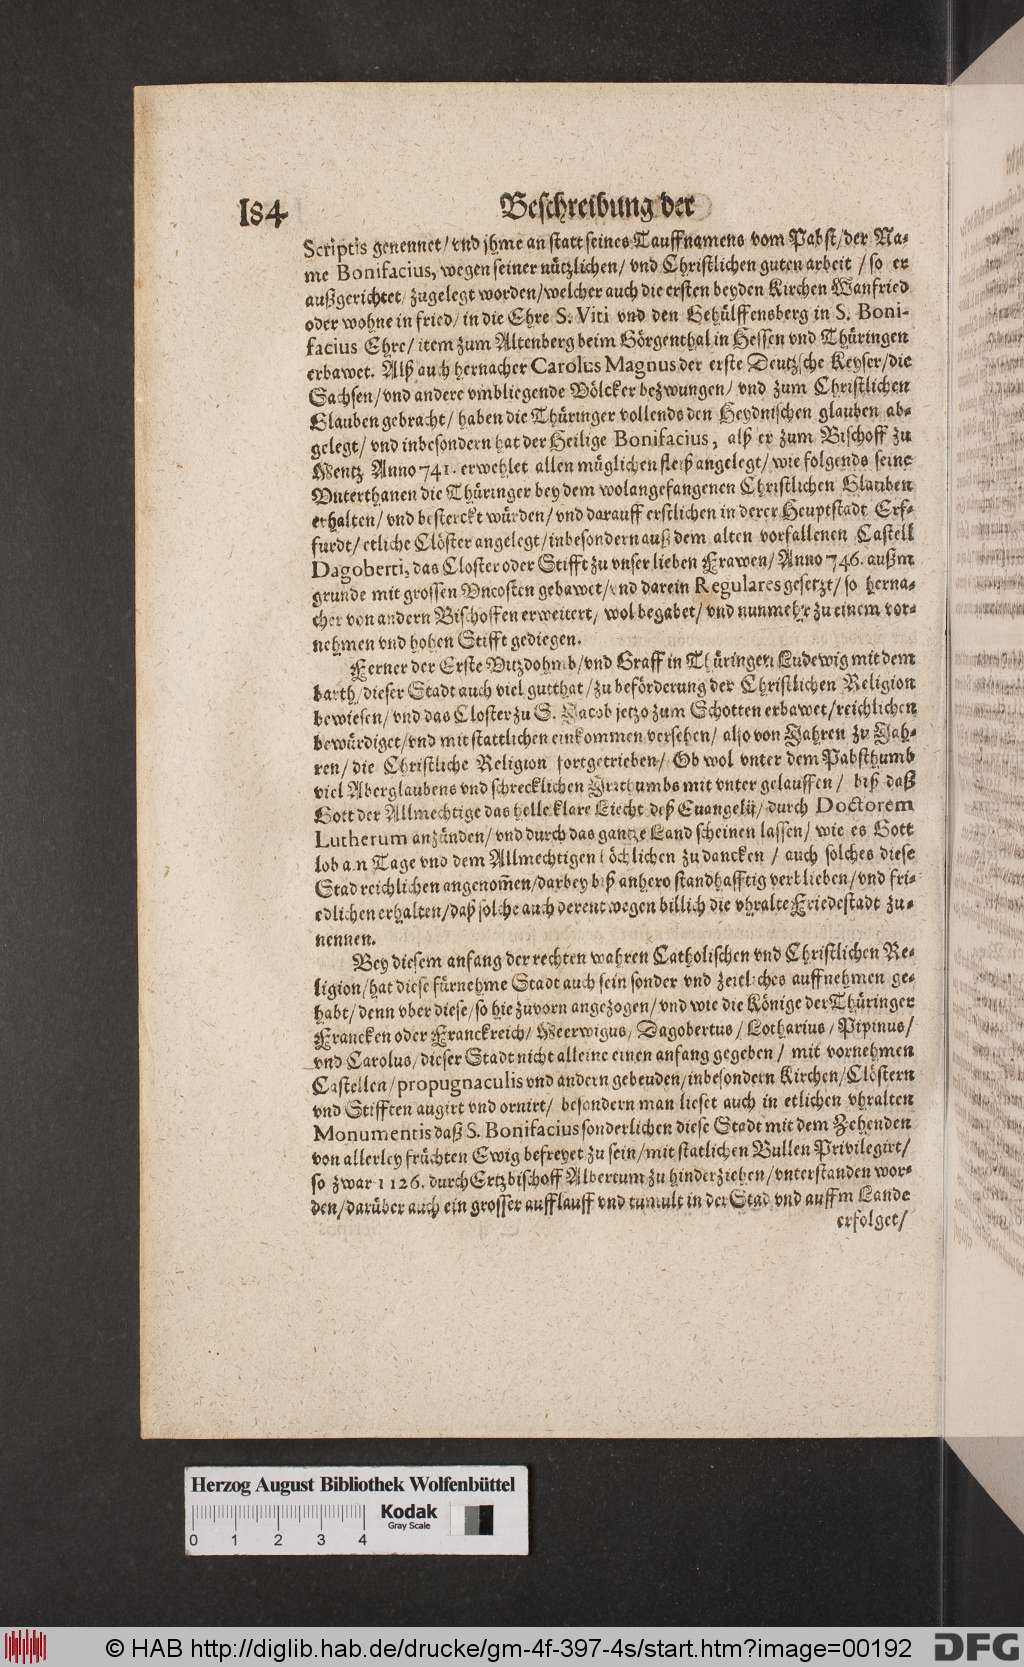 184 Beschreibung der
Scriptis genennet/ vnd jhme an statt seines Tauffnamens vom Pabst/ der Na-
me Bonifacius, wegen seiner nützlichen/ vnd Christlichen guten arbeit / so er
außgerichtet/ zugelegt worden/ welcher auch die ersten beyden Kirchen Wanfried
oder wohne in fried/ in die Ehre S. Viti vnd den Gehülffensberg in S. Boni-
facius Ehre/ item zum Altenberg beim Görgenthal in Hessen vnd Thüringen
erbawet. Alß auch hernacher Carolus Magnus der erste Deutzsche Keyser/ die
Sachsen/ vnd andere vmbliegende Völcker bezwungen/ vnd zum Christlichen
Glauben gebracht/ haben die Thüringer vollends den Heydnischen glauben ab-
gelegt/ vnd inbesondern hat der Heilige Bonifacius, alß er zum Bischoff zu
Mentz Anno 741. erwehlet allen müglichen fleiß angelegt/ wie folgends seine
Vnterthanen die Thüringer bey dem wolangefangenen Christlichen Glauben
erhalten/ vnd besterckt würden/ vnd darauff erstlichen in derer Heuptstadt Erf-
furdt/ etliche Clöster angelegt/ inbesondern auß dem alten vorfallenen Castell
Dagoberti, das Closter oder Stifft zu vnser lieben Frawen/ Anno 746. außm
grunde mit grossen Vncosten gebawet/ vnd darein Regulares gesetzt/ so herna-
cher von andern Bischoffen erweitert/ wol begabet/ vnd nunmehr zu einem vor-
nehmen vnd hohen Stifft gediegen.
Ferner der Erste Vitzdohmb/ vnd Graff in Thüringen Ludewig mit dem
barth/ dieser Stadt auch viel gutthat/ zu beförderung der Christlichen Religion
bewiesen/ vnd das Closter zu S. Jacob jetzo zum Schotten erbawet/ reichlichen
bewürdiget/ vnd mit stattlichen einkommen versehen/ also von Jahren zu Jah-
ren/ die Christliche Religion fortgetrieben/ Ob wol vnter dem Pabsthumb
viel Aberglaubens vnd schrecklichen Jrrthumbs mit vnter gelauffen / biß daß
Gott der Allmechtige das helle klare Liecht deß Euangelij/ durch Doctorem
Lutherum anzünden/ vnd durch das gantze Land scheinen lassen/ wie es Gott
lob am Tage vnd dem Allmechtigen höchlichen zu dancken / auch solches diese
Stad reichlichen angenom̃en/ darbey biß anhero standhafftig verblieben/ vnd fri-
edlichen erhalten/ daß solche auch derentwegen billich die vhralte Friedestadt zu-
nennen.
Bey diesem anfang der rechten wahren Catholischen vnd Christlichen Re-
ligion/ hat diese fürnehme Stadt auch sein sonder vnd zeitliches auffnehmen ge-
habt/ denn vber diese/ so hie zuvorn angezogen/ vnd wie die Könige der Thüringer
Francken oder Franckreich/ Meerwigus/ Dagobertus/ Lotharius/ Pipinus/
vnd Carolus/ dieser Stadt nicht alleine einen anfang gegeben / mit vornehmen
Castellen/ propugnaculis vnd andern gebeuden/ inbesondern Kirchen/ Clöstern
vnd Stifften augirt vnd ornirt/ besondern man lieset auch in etlichen vhralten
Monumentis daß S. Bonifacius sonderlichen diese Stadt mit dem Zehenden
von allerley früchten Ewig befreyet zu sein/ mit statlichen Bullen Privilegirt/
so zwar 1126. durch Ertzbischoff Albertum zu hinderziehen/ vnterstanden wor-
den/ darüber auch ein grosser aufflauff vnd tumult in der Stad vnd auffm Lande
erfolget/
Herzog August Bibliothek Wolfenbüttel
Kodak
Gray Scale
0 1 2 3 4
© HAB http://diglib.hab.de/drucke/gm-4f-397-4s/start.htm?image=00192
DFG